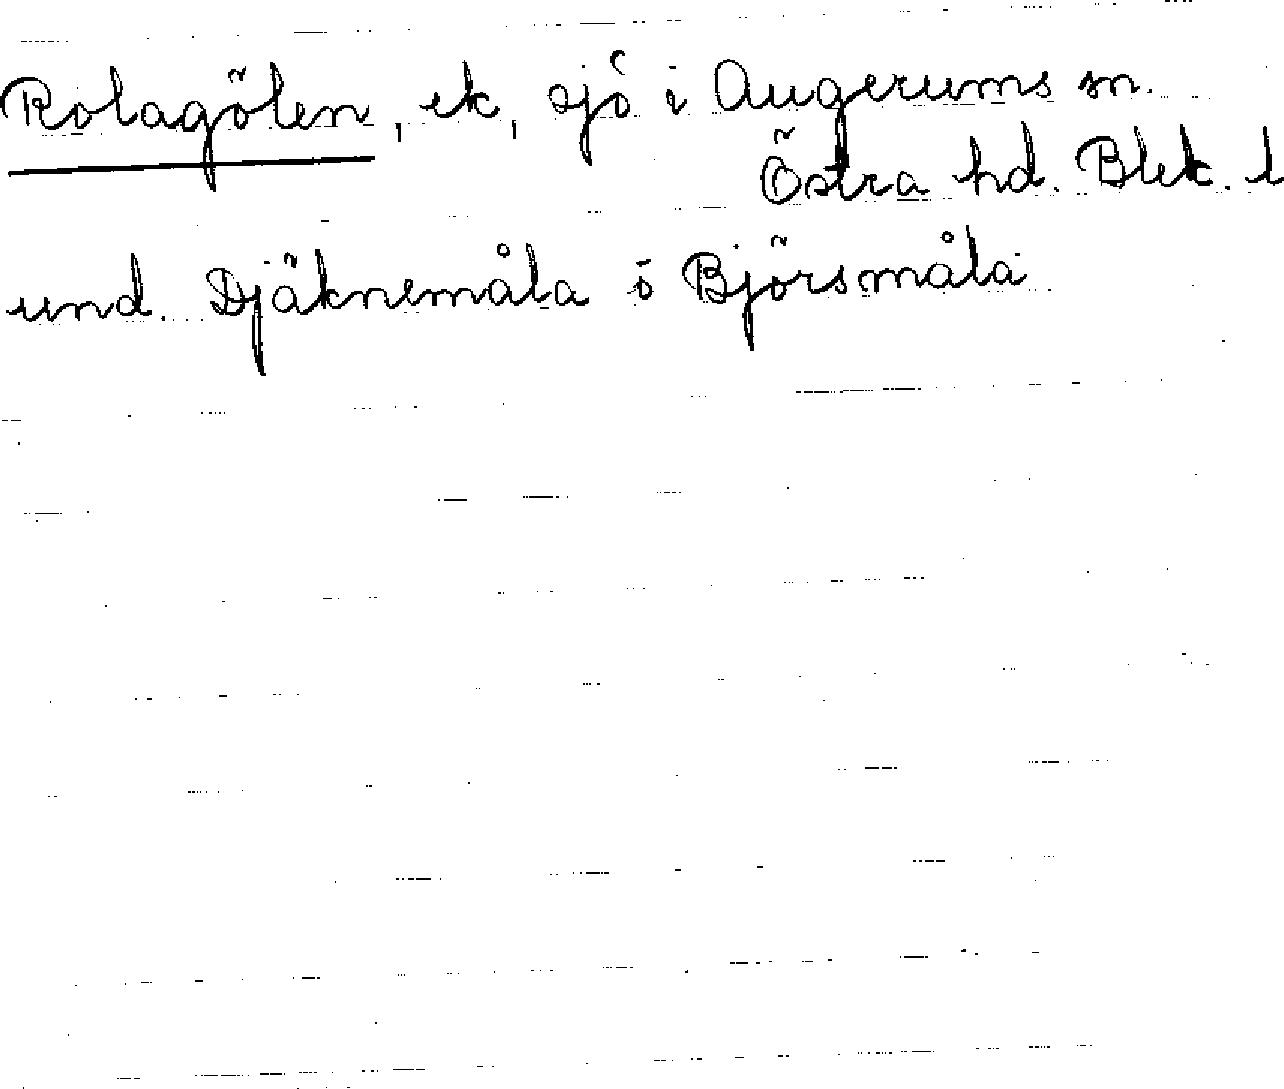 Rolagölen, ek, sjö i Augerums sn.
Östra hd. Blek. l
und. Djäknemåla ö Björsmåla